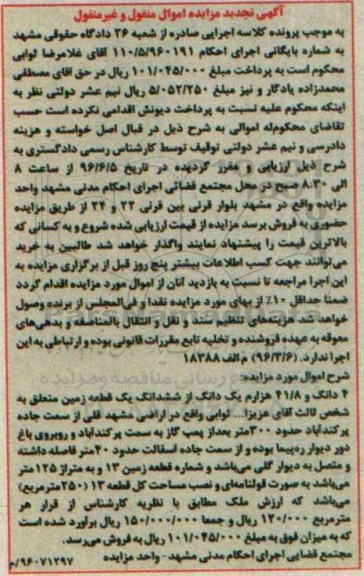 آگهی تجدید مزایده اموال منقول و غیرمنقول
به موجب پرونده کلاسه اجرایی صادره از شعبه ۲۶ دادگاه حقوقی مشهد
به شماره بایگانی اجرای احکام ۱۱۰/۵/۹۶۰۱۹۱ آقای غلامرضا ثوابی
محکوم است به پرداخت مبلغ ۱۰۱/۰۴۵/۰۰۰ ریال در حق آقای مصطفی
محمدزاده یادگار و نیز مبلغ ۵/۰۵۲/۲۵۰ ریال نیم عشر دولتی نظر به
اینکه محکوم علیه نسبت به پرداخت دیونش اقدامی نکرده است حسب
تقاضای محکوم‌له اموالی به شرح ذیل در قبال اصل خواسته و هزینه
دادرسی و نیم عشر دولتی توقیف توسط کارشناس رسمی دادگستری به
شرح ذیل ارزیابی و مقرر گردیده در تاریخ ۹۶/۶/۵ از ساعت ۸
الی ۸:۳۰ صبح در محل مجتمع قضائی اجرای احکام مدنی مشهد واحد
مزایده واقع در مشهد بلوار قرنی بین قرنی ۲۲ و ۲۴ از طریق مزایده
حضوری به فروش برسد مزایده از قیمت ارزیابی شده شروع و به کسانی که
بالاترین قیمت را پیشنهاد نمایند واگذار خواهد شد طالبین به خرید
می‌توانند جهت کسب اطلاعات بیشتر پنج روز قبل از برگزاری مزایده به
این اجرا مراجعه تا نسبت به بازدید آنان از اموال مورد مزایده اقدام گردد
ضمنا حداقل ۱۰٪ از بهای مورد مزایده نقدا و فی‌المجلس از برنده وصول
خواهد شد هزینه‌های تنظیم سند و نقل و انتقال بالمناصفه و بدهی‌های
معوقه به عهده فروشنده و تخلیه تابع مقررات قانونی بوده و ارتباطی به این
اجرا ندارد. (۹۶/۳/۶) م الف ۱۸۳۸۸
شرح اموال مورد مزایده:
۴ دانگ و ۴۱/۸ هزارم یک دانگ از ششدانگ یک قطعه زمین متعلق به
شخص ثالث آقای عزیزا... ثوابی واقع در اراضی مشهد قلی از سمت جاده
پرکندآباد حدود ۳۰۰متر بعد از پمپ گاز به سمت پرکندآباد و روبروی باغ
دور دیوار ره‌پیما بوده و از سمت جاده آسفالت حدود ۴۰متر فاصله داشته
و متصل به دیوار گلی می‌باشد و شماره قطعه زمین ۱۳ و به متراژ ۱۲۵ متر
می‌باشد به صورت قولنامه‌ای و نصب مساحت کل قطعه ۱۳ (۲۵۰مترمربع)
می‌باشد که ارزش ملک مطابق با نظریه کارشناس از قرار هر
مترمربع ۱۲۰/۰۰۰ ریال و جمعا ۱۵۰/۰۰۰/۰۰۰ ریال برآورد شده است
که به میزان فوق به مبلغ ۱۰۱/۰۴۵/۰۰۰ ریال به فروش می‌رسد.
مجتمع قضایی اجرای احکام مدنی مشهد - واحد مزایده
۹۶۰۷۱۲۹۷/م